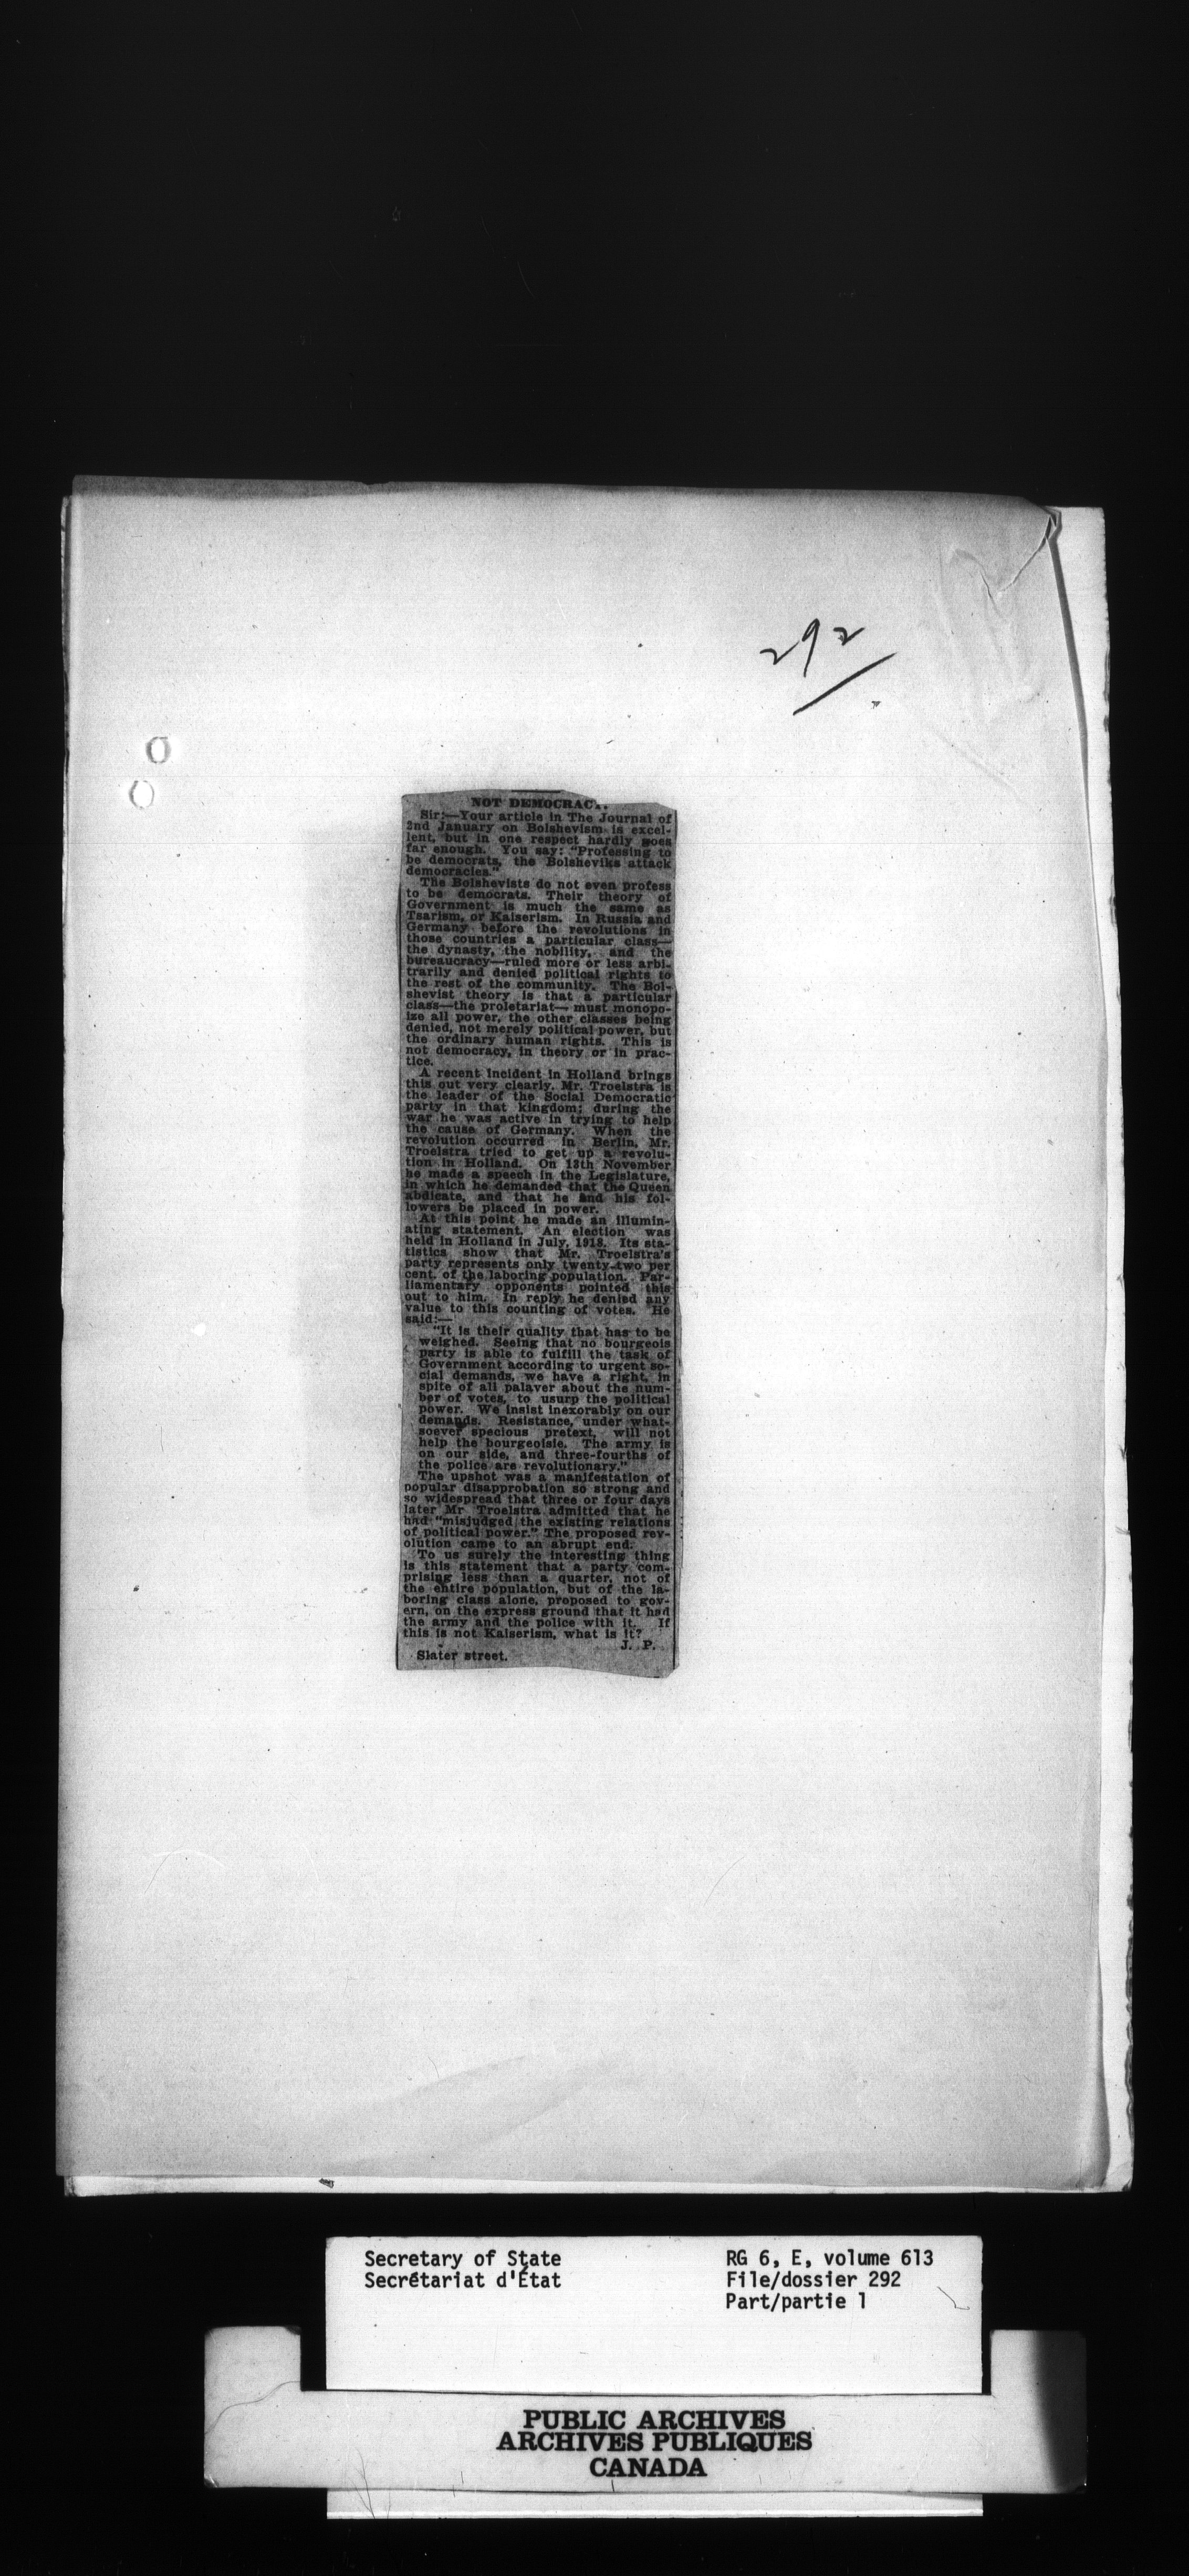 292
NOT DEMOCRACY.
Sir:—Your article in The Journal of
2nd January on Bolshevism is excel-
lent, but in one respect hardly goes
far enough. You say: "Professing to
be democrats, the Bolsheviks attack
democracies."
The Bolshevists do not even profess
to be democrats. Their theory of
Government is much the same as
Tsarism, or Kaiserism. In Russia and
Germany before the revolutions in
those countries a particular class—
the dynasty, the nobility, and the
bureaucracy—ruled more or less arbi-
trarily and denied political rights to
the rest of the community. The Bol-
shevist theory is that a particular
class—the proletariat— must monopo-
ize all power, the other classes being
denied, not merely political power, but
the ordinary human rights. This is
not democracy, in theory or in prac-
tice.
A recent incident in Holland brings
this out very clearly. Mr. Troelstra is
the leader of the Social Democratic
party in that kingdom; during the
war he was active in trying to help
the cause of Germany. When the
revolution occurred in Berlin, Mr.
Troelstra tried to get up a revolu-
tion in Holland. On 13th November
he made a speech in the Legislature,
in which he demanded that the Queen
abdicate, and that he and his fol-
lowers be placed in power.
At this point he made an illumin-
ating statement. An election was
held in Holland in July, 1918. Its sta-
tistics show that Mr. Troelstra's
party represents only twenty-two per
cent. of the laboring population. Par-
liamentary opponents pointed this
out to him. In reply he denied any
value to this counting of votes. He
said:—
"It is their quality that has to be
weighed. Seeing that no bourgeois
party is able to fulfill the task of
Government according to urgent so-
cial demands, we have a right, in
spite of all palaver about the num-
ber of votes, to usurp the political
power. We insist inexorably on our
demands. Resistance, under what-
soever specious pretext, will not
help the bourgeoisie. The army is
on our side, and three-fourths of
the police are revolutionary."
The upshot was a manifestation of
popular disapprobation so strong and
so widespread that three or four days
later Mr Troelstra admitted that he
had "misjudged the existing relations
of political power." The proposed rev-
olution came to an abrupt end.
To us surely the interesting thing
is this statement that a party com-
prising less than a quarter, not of
the entire population, but of the la-
boring class alone, proposed to gov-
ern, on the express ground that it had
the army and the police with it. If
this is not Kaiserism, what is it?
J. P.
Slater street.
Secretary of State
Secrétariat d'État
RG 6, E, volume 613
File/dossier 292
Part/partie 1
PUBLIC ARCHIVES
ARCHIVES PUBLIQUES
CANADA